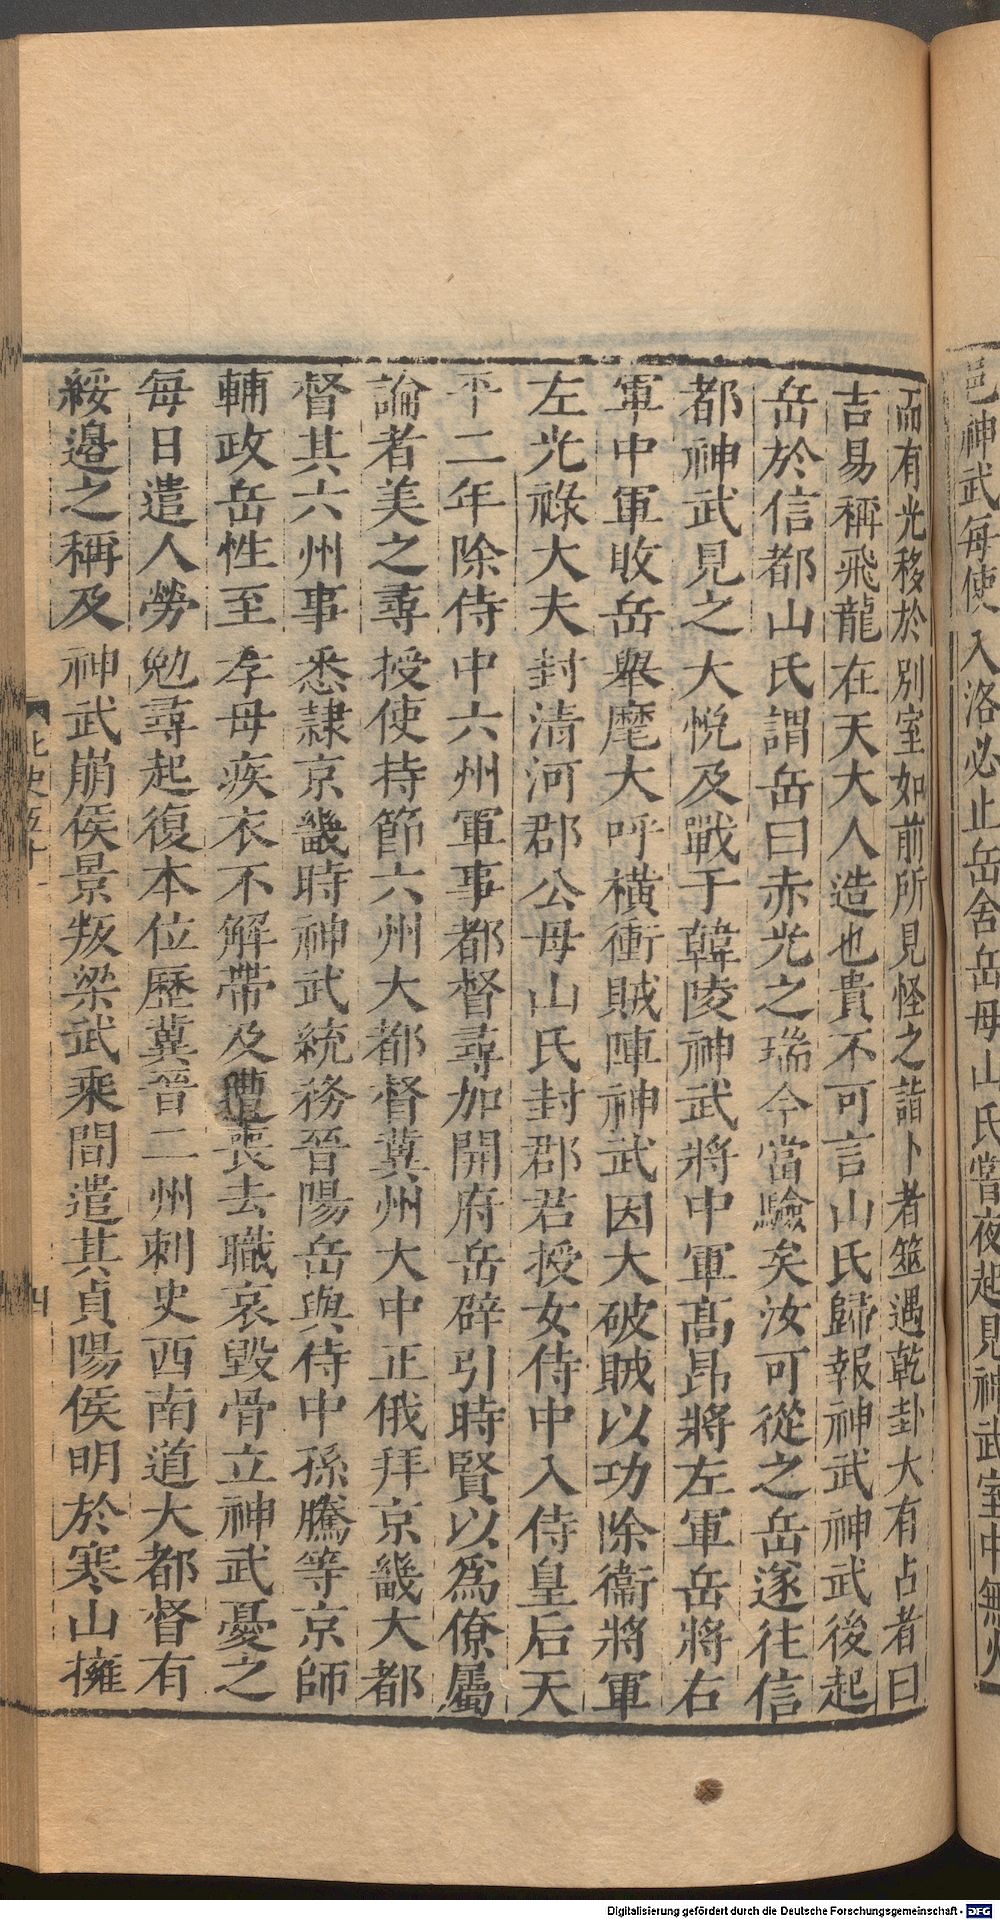 邑神武每使入洛必止岳舍岳母山氏嘗夜起見神武室中無火
而有光移於別室如前所見怪之詣卜者筮遇乾卦大有占者曰
吉易稱飛龍在天大人造也貴不可言山氏歸報神武神武後起
岳於信都山氏謂岳曰赤光之瑞今當驗矣汝可從之岳遂往信
都神武見之大悅及戰于韓陵神武將中軍高昂將左軍岳將右
軍中軍敗岳舉麾大呼橫衝賊陣神武因大破賊以功除衞將軍
左光祿大夫封清河郡公母山氏封郡君授女侍中入侍皇后天
平二年除侍中六州軍事都督尋加開府岳辟引時賢以為僚屬
論者美之尋授使持節六州大都督冀州大中正俄拜京畿大都
督其六州事悉隷京畿時神武統務晉陽岳與侍中孫騰等京師
輔政岳性至孝母疾衣不解帶及遭喪去職哀毀骨立神武憂之
每日遣人勞勉尋起復本位歷冀晉二州刺史西南道大都督有
綏邊之稱及神武崩侯景叛梁武乘間遣其貞陽侯明於寒山擁
北史五十一
四
Digitalisierung gefördert durch die Deutsche Forschungsgemeinschaft - DFG